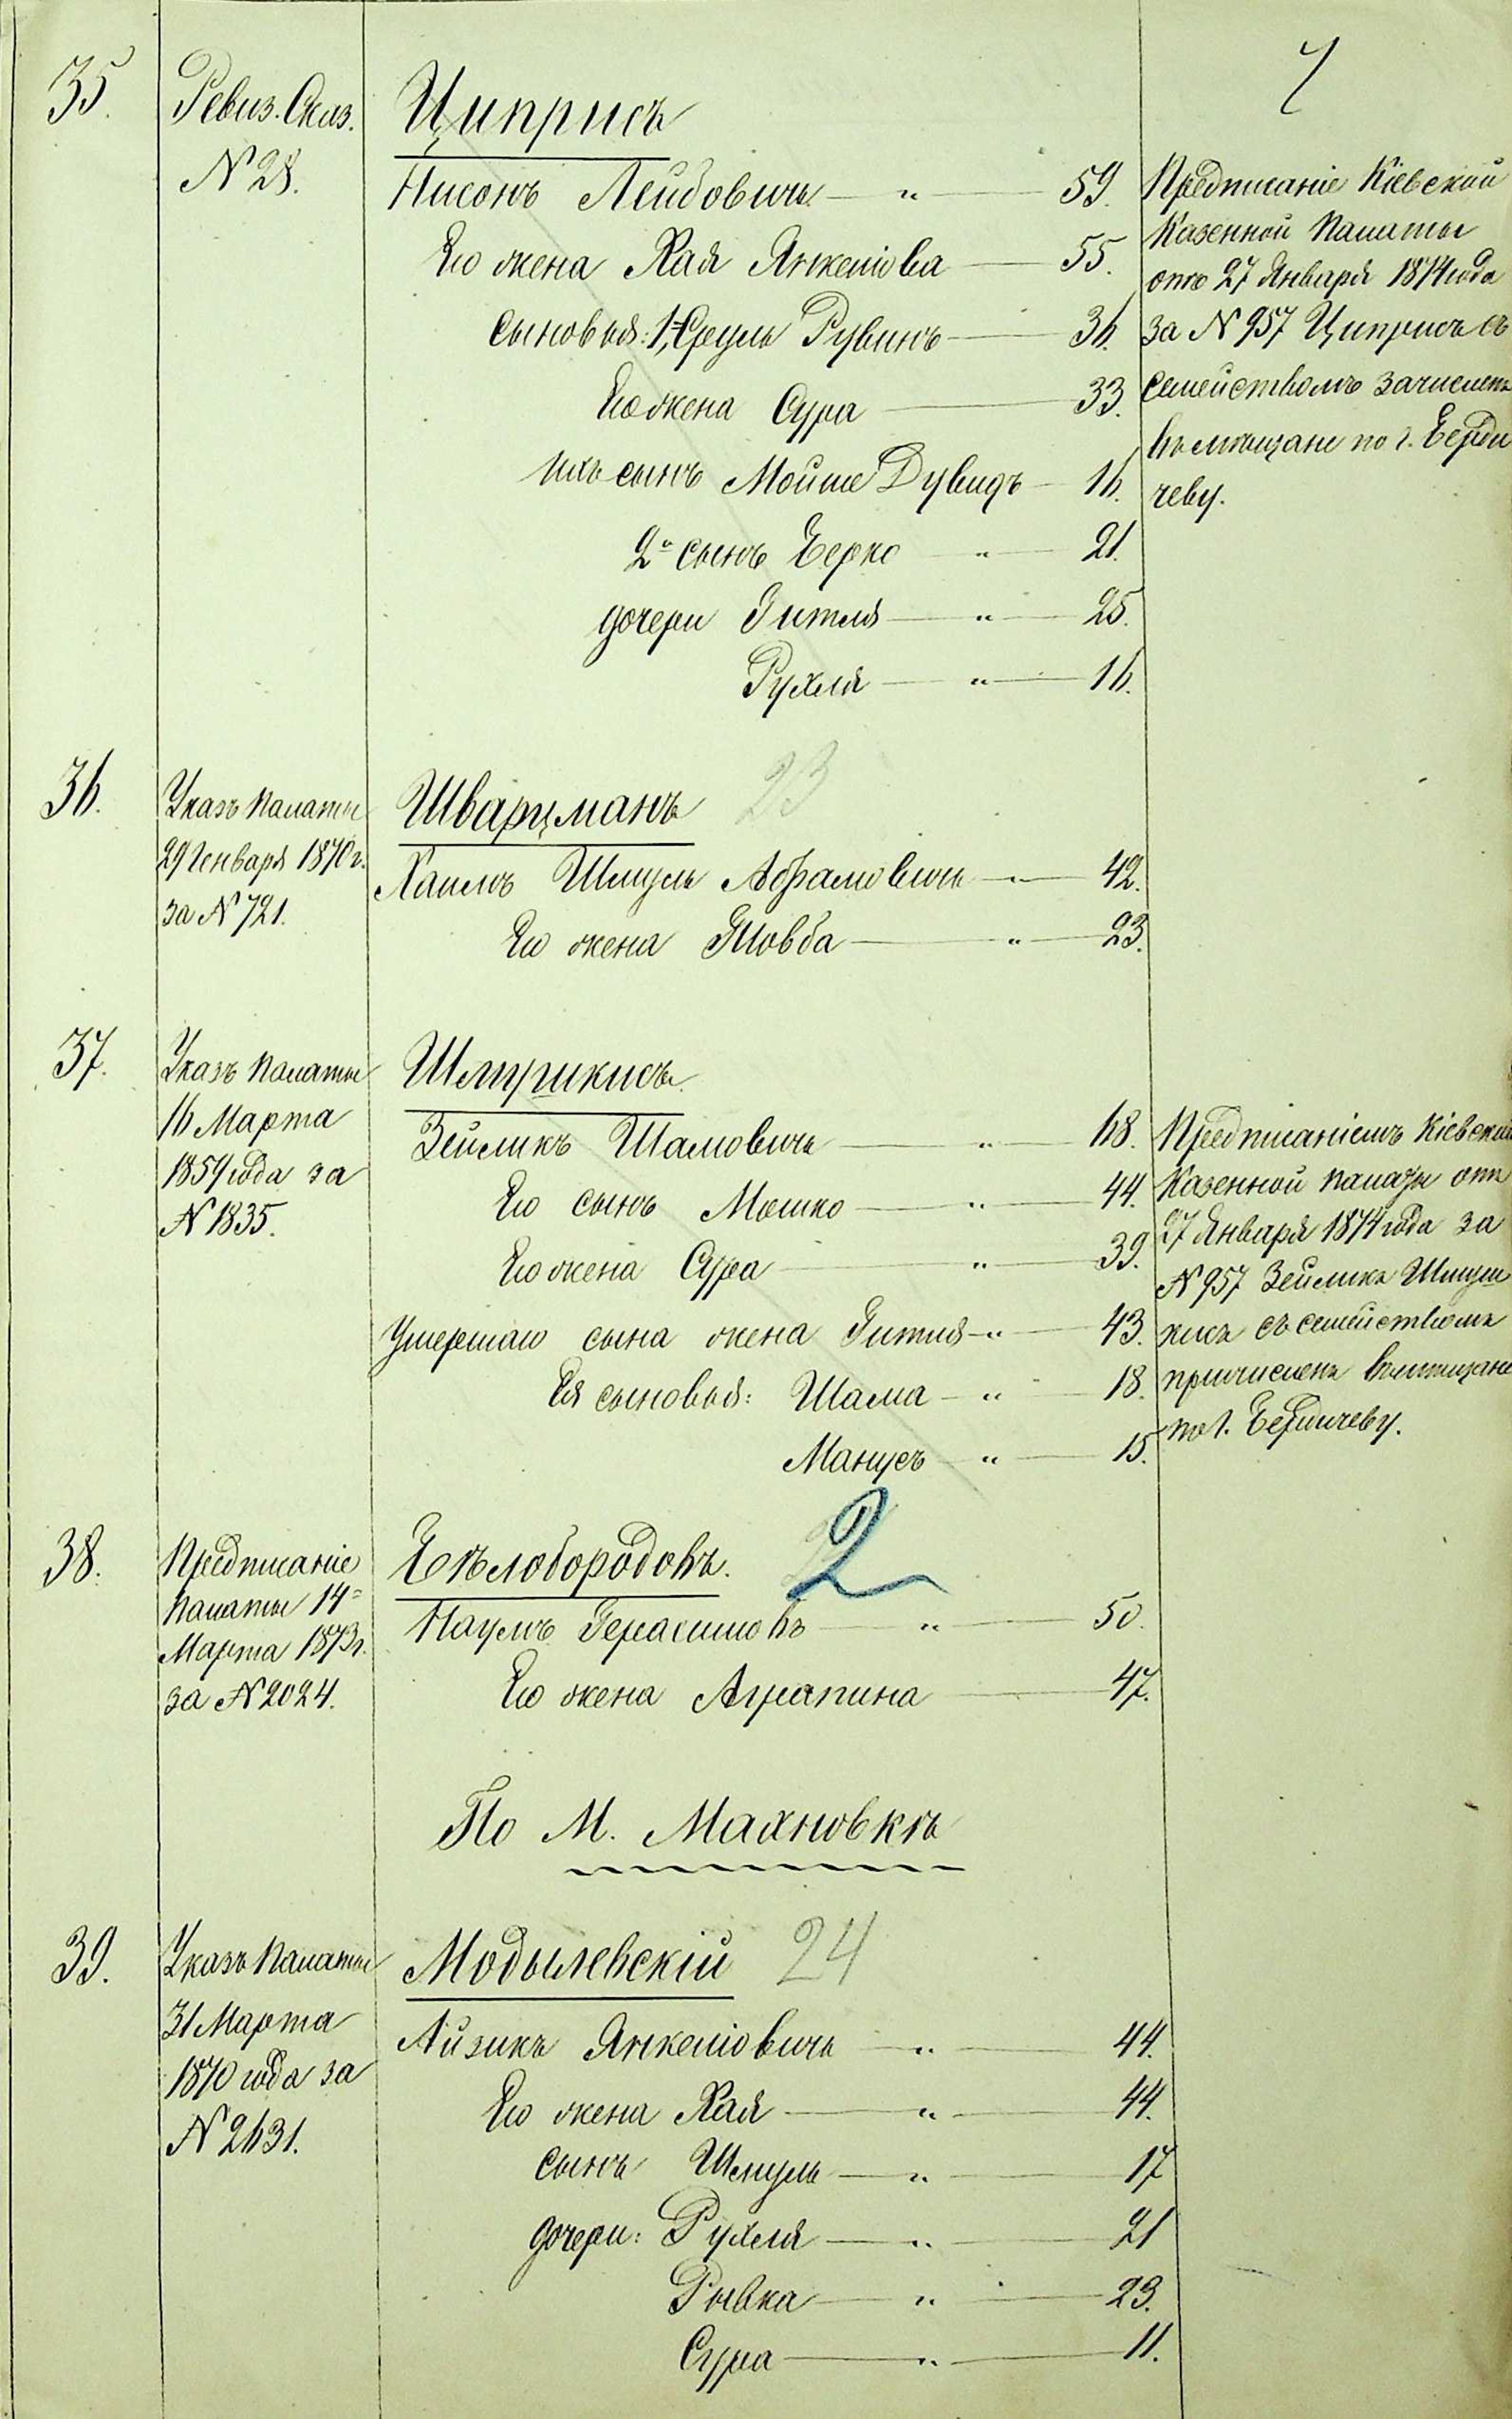 7
35.
Ревиз. Сказ.
N 28.
Циприсъ
Нисонъ Лейбовичъ — " — 59.
Его жена Хая Янкелiова — 55.
Сыновья: 1, Сруль Рувинъ — 36.
Его жена Сура — 33.
Ихъ сынъ Мойше Дувидъ — 16.
2й сынъ Берко — " — 21.
дочери Гитля — " — 25.
Рухля — " — 16.
Предписанiе Кiевской
Казенной Палаты
отъ 27 Января 1874 года
за N 957 Циприсъ съ
семействомъ зачисленъ
въ мѣщане по г. Берди
чеву.
36.
Указъ Палаты
29 Генваря 1870 г.
за N 721.
Шварцманъ 23
Хаимъ Шмуль Абрамовичъ — " — 42.
Его жена Товба — " — 23.
37.
Указъ Палаты
16 Марта
1859 года за
N 1835.
Шмушкисъ.
Зейликъ Шамовичъ — " — 68.
Его сынъ Мошко — " — 44.
Его жена Сура — " — 39.
Умершаго сына жена Гитля — " — 43.
Ея сыновья: Шама — " — 18.
Манусъ — " — 15.
Предписанiемъ Кiевской
Казенной палаты отъ
27 Января 1874 года за
N 957 Зейликъ Шмуш
кисъ съ семействомъ
причисленъ въ мѣщане
по г. Бердичеву.
38.
Предписанiе
Палаты 14
Марта 1873 г.
за N 2024.
Бѣлобородовъ. 2
Наумъ Герасимовъ — " — 50.
Его жена Аграпина — 47.
По М. Махновкѣ
39.
Указъ Палаты
31 Марта
1870 года за
N 2631.
Модылевскiй 24
Айзикъ Янкелiовичъ — " — 44.
Его жена Хая — " — 44.
сынъ Шмуль — " — 17
дочери: Рухля — " — 21
Рывка — " — 23.
Сура — " — 11.